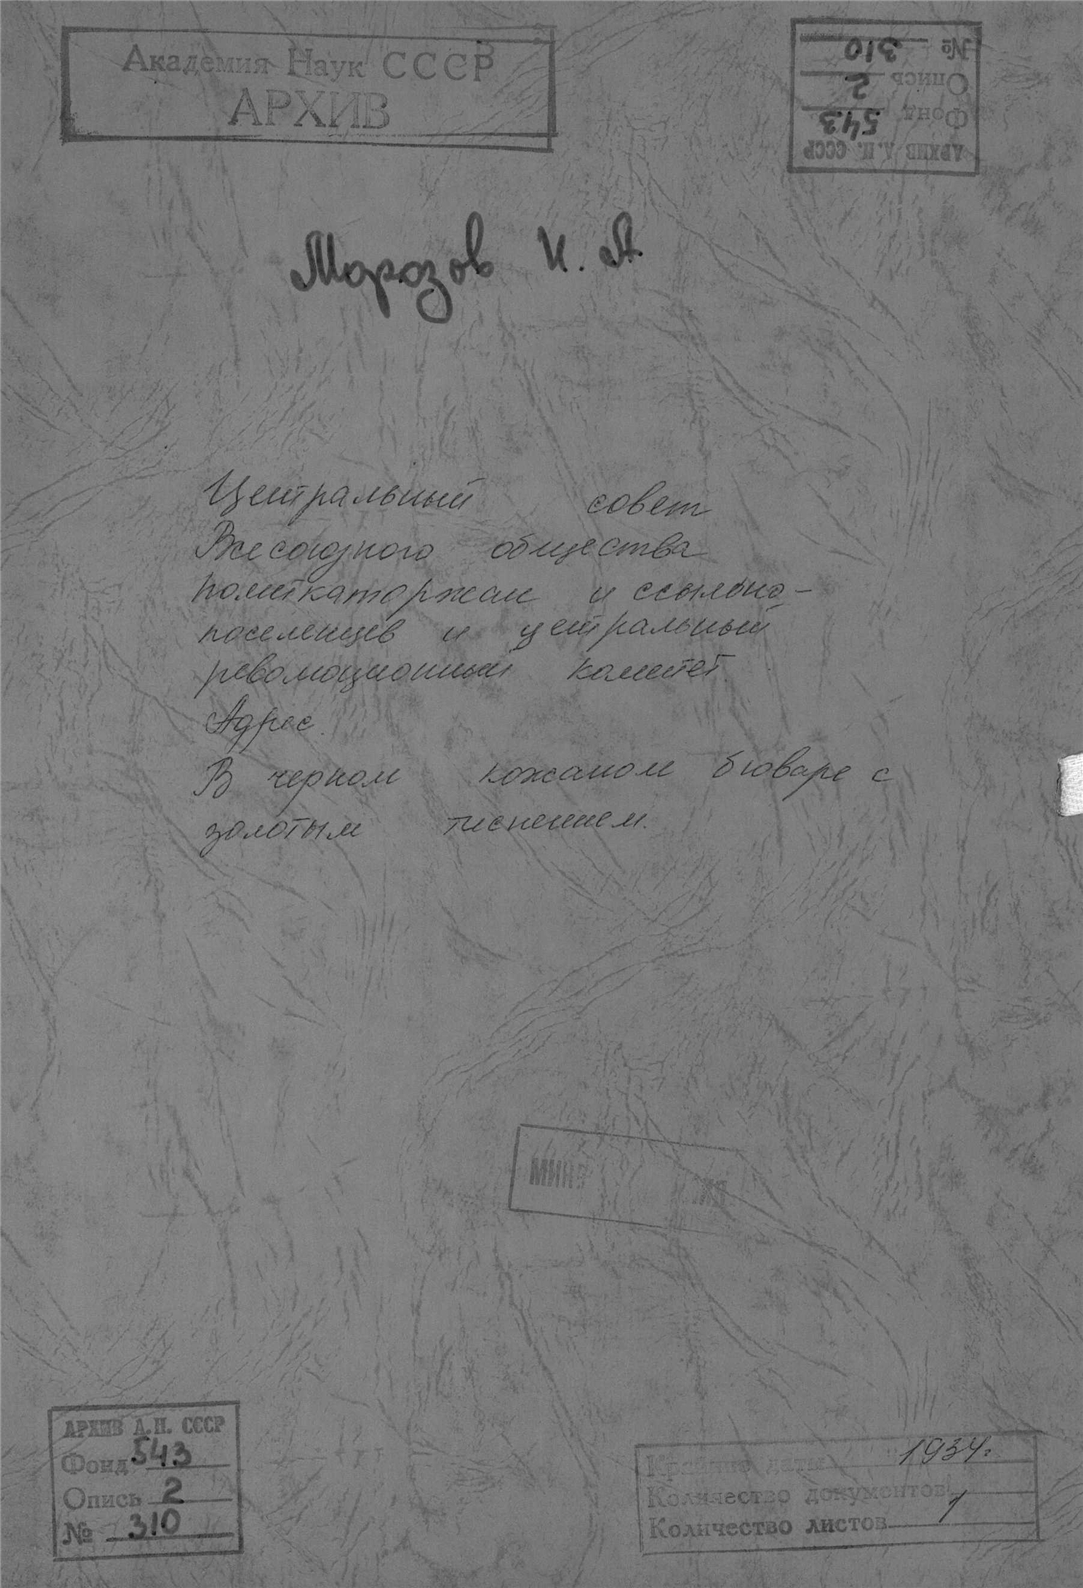 Академия Наук СССР
АРХИВ
№ 310
Опись 2
Фонд 543
АРХИВ А.Н. СССР
Морозов Н. А.
Центральный совет
Всесоюзного общества
политкаторжан и ссыльно-
поселенцев и центральный
революционный комитет.
Адрес.
В черном кожаном бюваре с
золотым тиснением.
АРХИВ А.Н. СССР
Фонд 543
Опись 2
№ 310
Крайние даты 1934г.
Количество документов
Количество листов 1